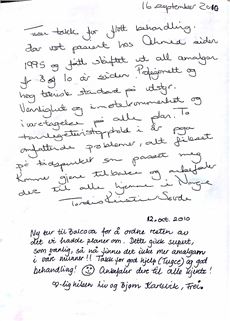 16 september 2010
Tusen takk for flott behandling.
Har vært pasient hos Ahmed siden
1995 og fått skiftet ut all amalgam
for 8 og 10 år siden. Profesjonelt og
høy teknisk standard på utstyr.
Vennlighet og imøtekommenhet og
ivaretagelse på alle plan. To
tannlegeteamopphold i år pga
omfattende problemer, alt fikset
på tidspunktet som passet meg
kommer gjerne tilbake og anbefaler
dere til alle hjemme i Norge
12. okt. 2010
Ny tur til Balcova for å ordne resten av
det vi hadde planer om. Dette gikk supert,
som vanlig, så nå finnes det ikke mer amalgam
i vår munner!! Takk for god hjelp (Tugce) og god
behandling! Anbefaler dere til alle kjente!
Og-lig hilsen Liv og Bjørn Karlsvik, Frei